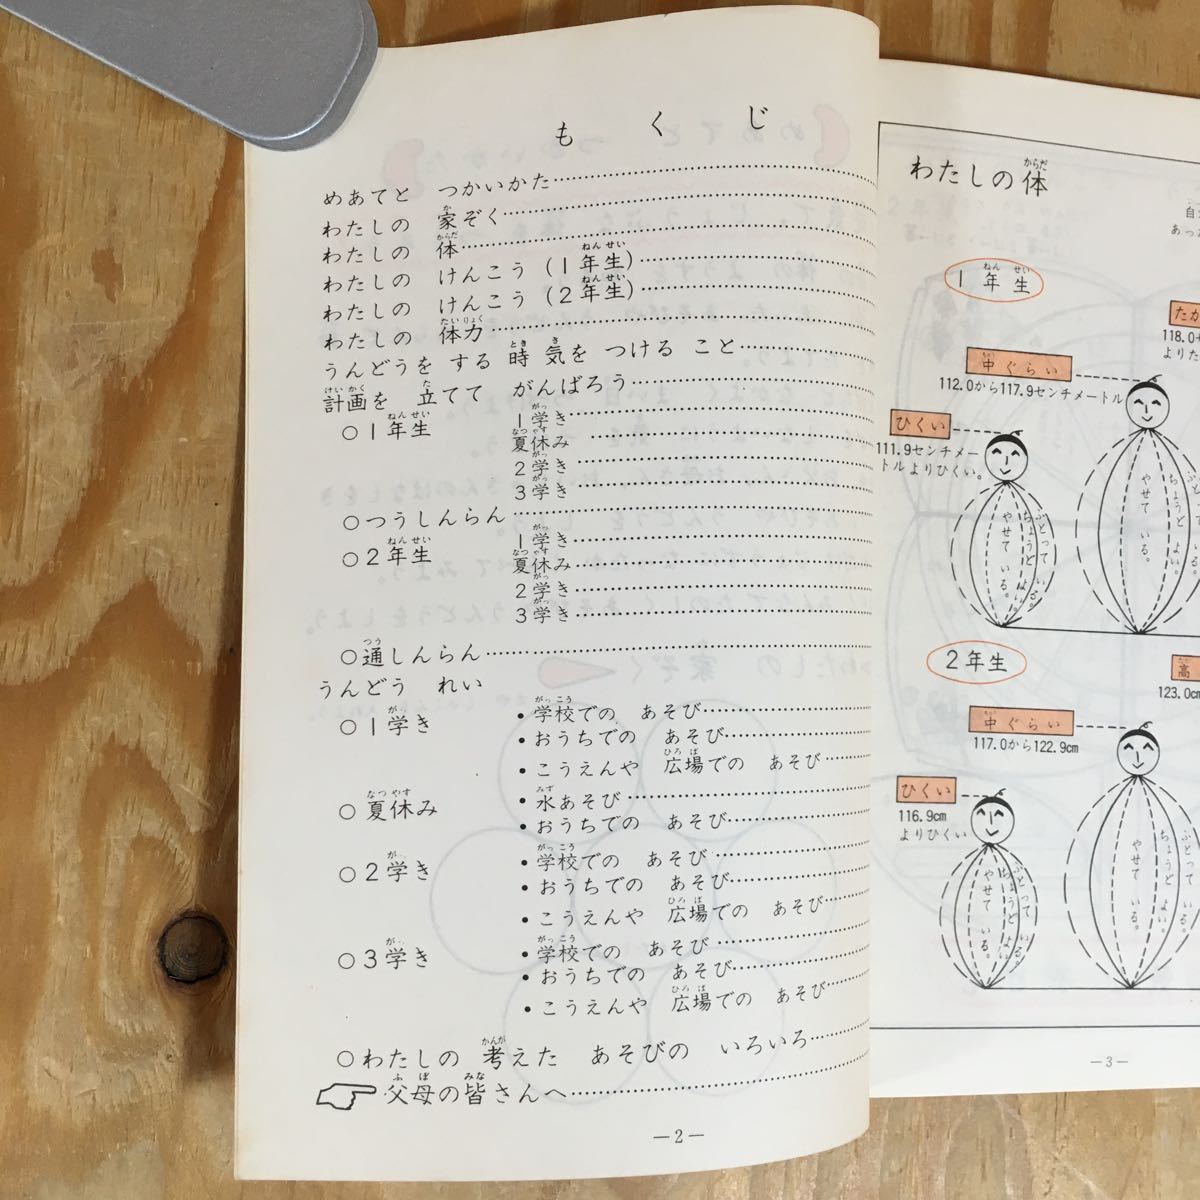 もくじ
めあてと つかいかた
わたしの 家ぞく
わたしの 体
わたしの けんこう (1年生)
わたしの けんこう (2年生)
わたしの 体力
うんどうを する 時 気を つける こと
計画を 立てて がんばろう
○1年生 1学き
夏休み
2学き
3学き
○つうしんらん
○2年生 1学き
夏休み
2学き
3学き
○通しんらん
うんどう れい
○1学き •学校での あそび
•おうちでの あそび
•こうえんや 広場での あそび
○夏休み •水あそび
•おうちでの あそび
○2学き •学校での あそび
•おうちでの あそび
•こうえんや 広場での あそび
○3学き •学校での あそび
•おうちでの あそび
•こうえんや 広場での あそび
○わたしの 考えた あそびの いろいろ
父母の皆さんへ
—2—
わたしの体
1年生
中ぐらい
112.0から117.9センチメートル
118.0
ひくい
111.9センチメー
トルよりひくい。
ふとって いる。
ちょうど よい。
やせて いる。
ふとって いる。
ちょうど よい。
やせて いる。
2年生
高
123.0cm
中ぐらい
117.0から122.9cm
ひくい
116.9cm
よりひくい
ふとって いる。
ちょうど よい。
やせて いる。
ふとって いる。
ちょうど よい。
やせて いる。
—3—